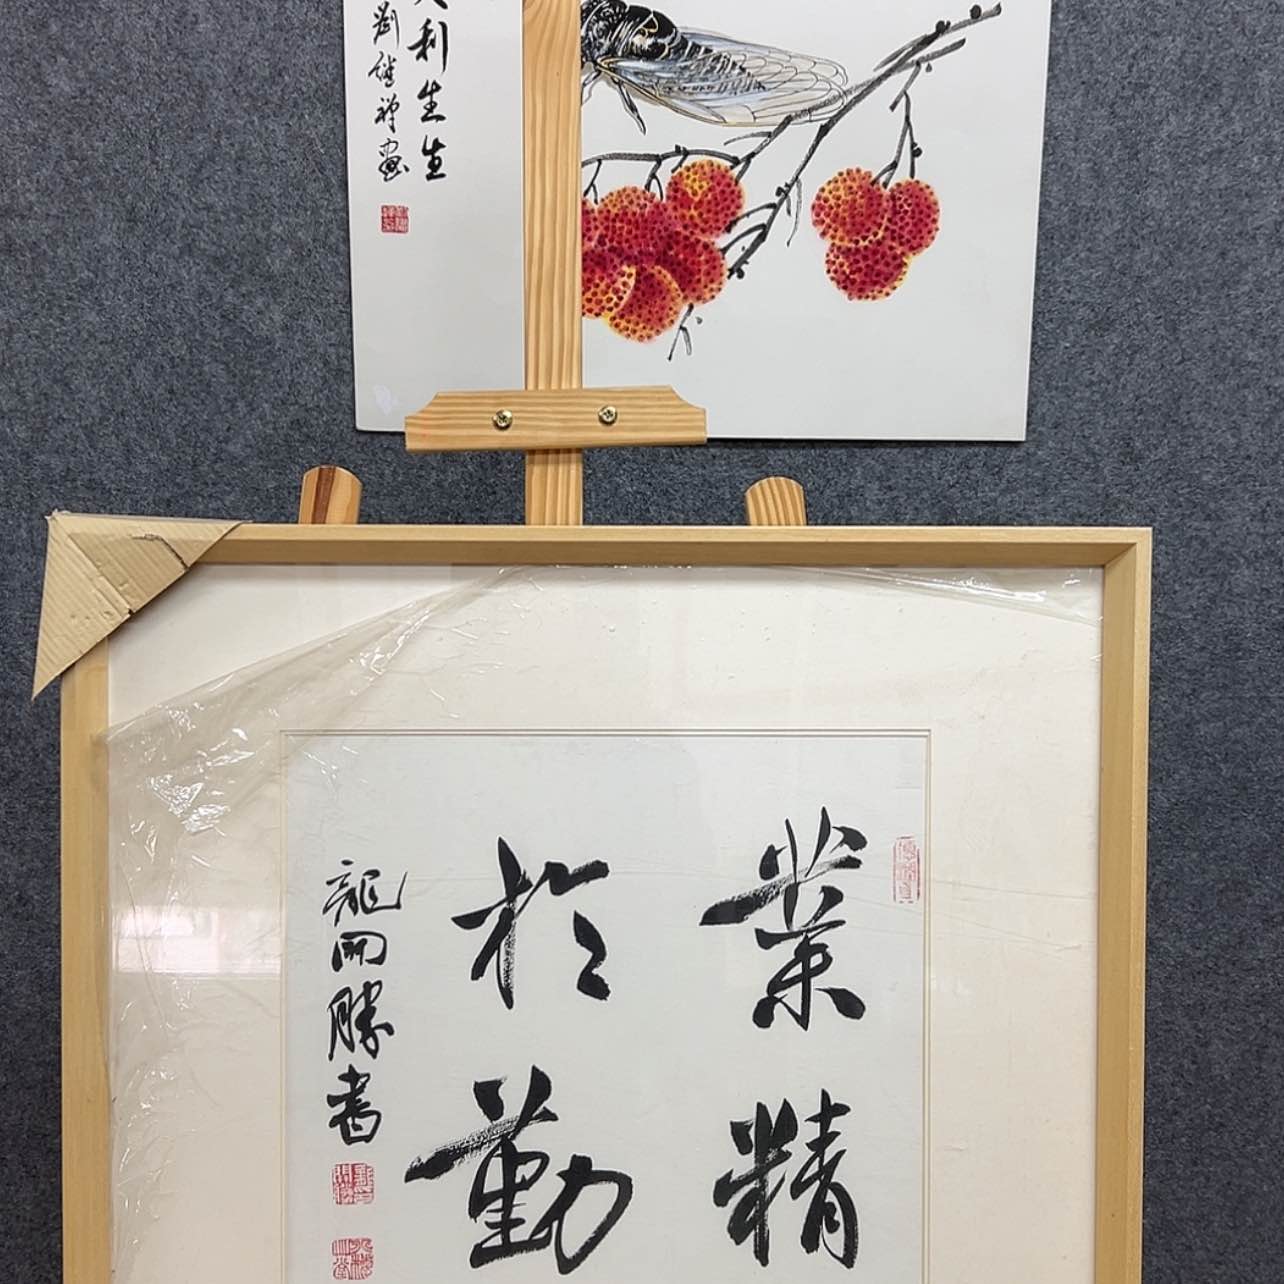 利生生
劉繼禅畫
業精
於勤
龍開勝書